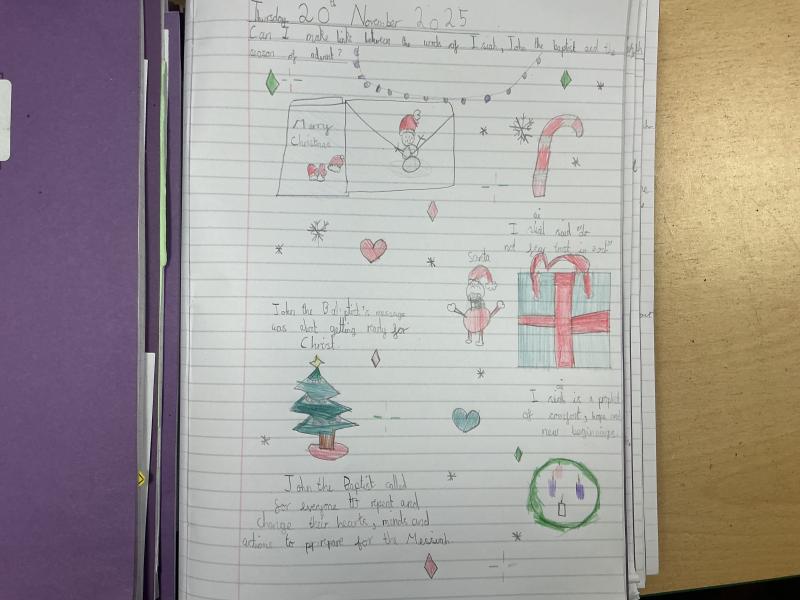 Thursday 20th November 2025
Can I make links between the words of Isaiah, John the baptist and the
season of advent?
Merry
Christmas
Isaiah said "do
not fear trust in god"
Santa
John the Baptist's message
was about getting ready for
Christ.
Isaiah is a prophet
of comfort, hope and
new beginnings
John the Baptist called
for everyone to repent and
change their hearts, minds and
actions to prepare for the Messiah.